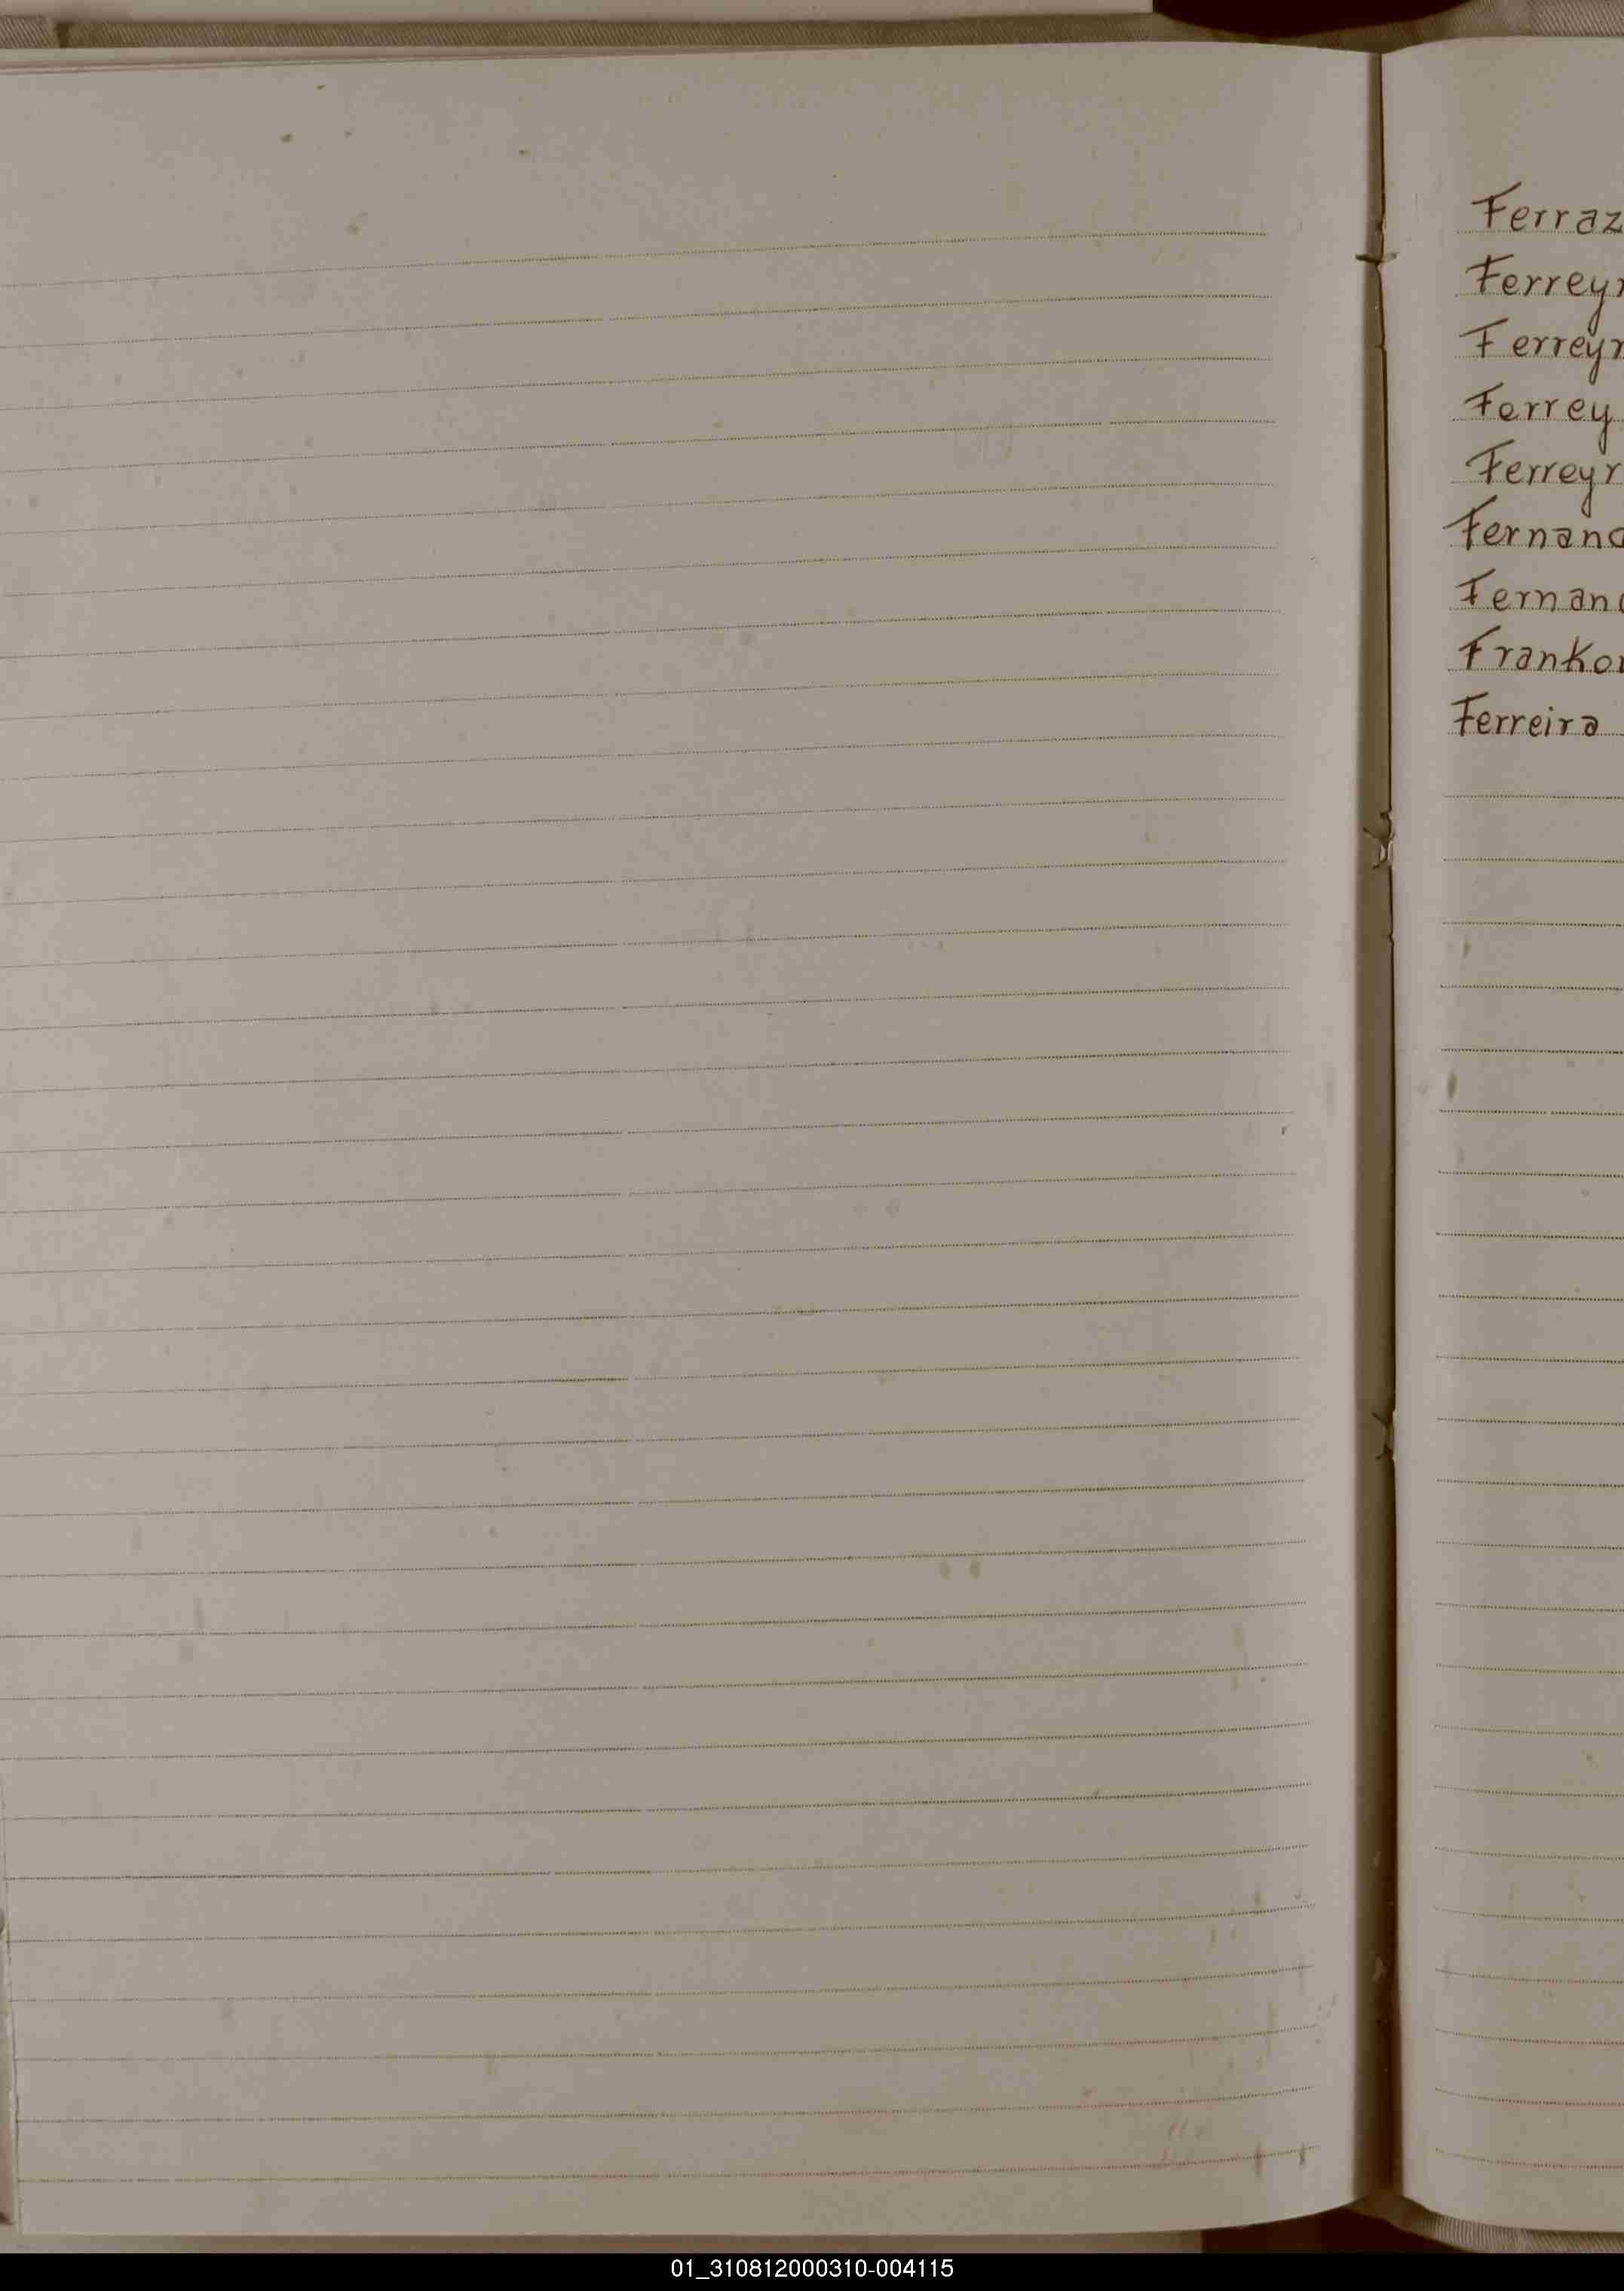 Ferraz
Ferreyr
Ferreyr
Ferrey
Ferreyr
Fernand
Fernand
Frankor
Ferreira
01_310812000310-004115